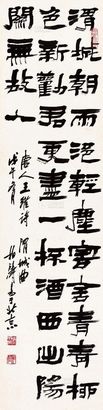 渭城朝雨浥輕塵客舍青青柳
色新勸君更盡一杯酒西出陽
關無故人
唐人王維詩渭城曲
戊午月